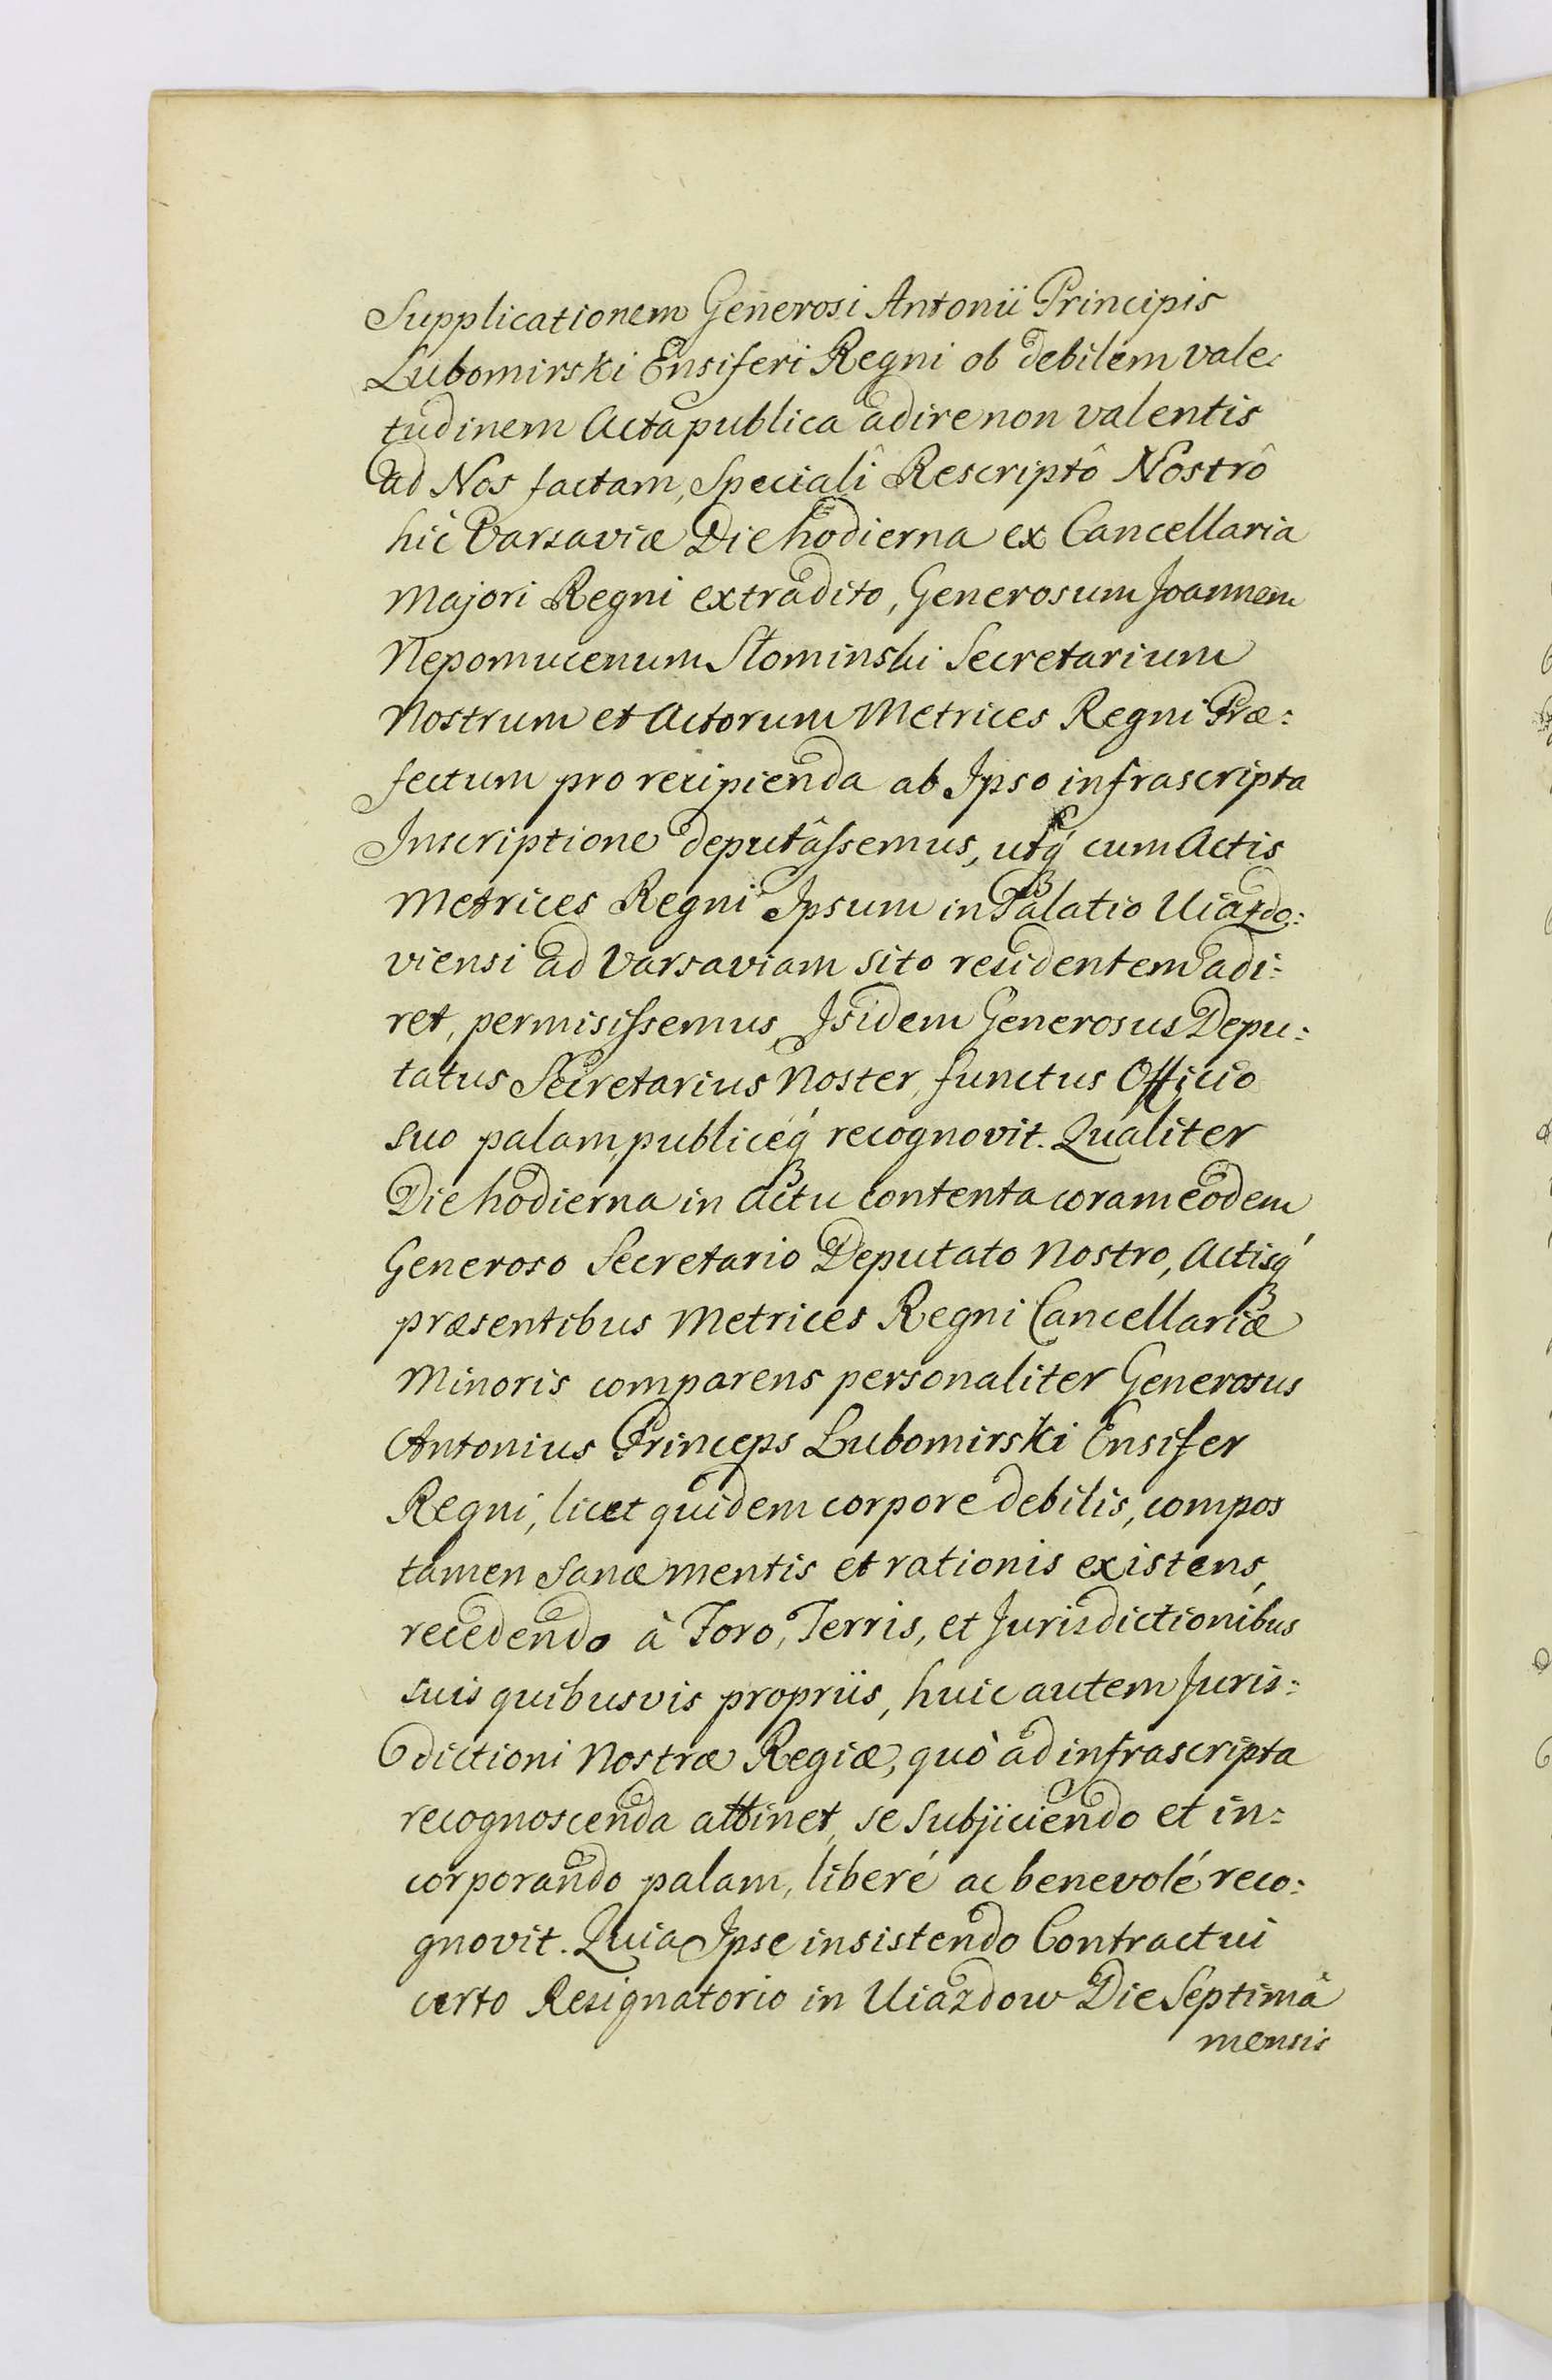 Supplicationem Generosi Antonii Principis
Lubomirski Ensiferi Regni ob debilem vale:
tudinem Acta publica adire non valentis
ad Nos factam, Speciali Rescriptô Nostrô
hic Varsaviæ Die hodierna ex Cancellaria
Majori Regni extradito, Generosum Joannem
Nepomucenum Słominski Secretarium
Nostrum et Actorum Metrices Regni Præ:
fectum pro recipienda ab Ipso infrascripta
Inscriptione deputâssemus, utq́ cum Actis
Metrices Regni Ipsum in Palatio Uiazdo:
viensi ad Varsaviam sito residentem adi:
ret, permisissemus, Isidem Generosus Depu:
tatus Secretarius Noster, functus Officio
suo palam, publiceq́ recognovit. Qualiter
Die hodierna in Actu contenta coram eodem
Generoso Secretario Deputato Nostro, Actisq́
præsentibus Metrices Regni Cancellariæ
Minoris comparens personaliter Generosus
Antonius Princeps Lubomirski Ensifer
Regni, licet quidem corpore debilis, compos
tamen sanæ mentis et rationis existens,
recedendo à Foro, Terris, et Jurisdictionibus
suis quibusvis propriis, huic autem Juris:
dictioni Nostræ Regiæ, quò ad infrascripta
recognoscenda attinet, se subjiciendo et in:
corporando palam, liberé ac benevolé reco:
gnovit. Quia Ipse insistendo Contractui
certo Resignatorio in Uiazdow Die Septimâ
mensis